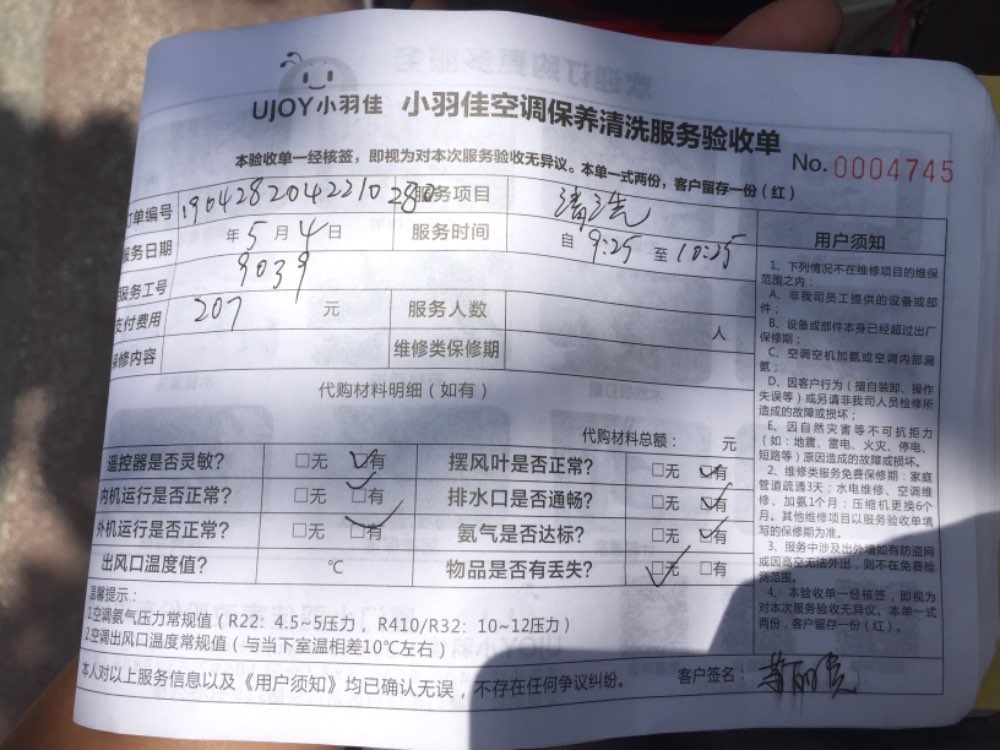 UJOY小羽佳 小羽佳空调保养清洗服务验收单
No. 0004745
本验收单一经核签，即视为对本次服务验收无异议。本单一式两份，客户留存一份（红）
订单编号 1904282042210280 服务项目 清洗
服务日期 年 5 月 4 日 服务时间 自 9:25 至 10:25
服务工号 9039
支付费用 207 元 服务人数 人
保修内容 维修类保修期
代购材料明细（如有）
代购材料总额： 元
遥控器是否灵敏？ □无 □有 摆风叶是否正常？ □无 □有
内机运行是否正常？ □无 □有 排水口是否通畅？ □无 □有
外机运行是否正常？ □无 □有 氨气是否达标？ □无 □有
出风口温度值？ ℃ 物品是否有丢失？ □无 □有
温馨提示：
1.空调氨气压力常规值（R22：4.5~5压力，R410/R32：10~12压力）
2.空调出风口温度常规值（与当下室温相差10℃左右）
本人对以上服务信息以及《用户须知》均已确认无误，不存在任何争议纠纷。 客户签名：
用户须知
1、下列情况不在维修项目的维保
范围之内：
A、非我司员工提供的设备或部
件；
B、设备或部件本身已经超过出厂
保修期；
C、空调空机加氨或空调内部漏
氨；
D、因客户行为（擅自装卸、操作
失误等）或另请非我司人员检修所
造成的故障或损坏；
E、因自然灾害等不可抗拒力
（如：地震、雷电、火灾、停电、
短路等）原因造成的故障或损坏。
2、维修类服务免费保修期：家庭
管道疏通3天；水电维修、空调维
修、加氨1个月；压缩机更换6个
月。其他维修项目以服务验收单填
写的保修期为准。
3、服务中涉及出外墙如有防盗网
或因高空无法外出，则不在免费检
测范围。
4、本验收单一经核签，即视为
对本次服务验收无异议。本单一式
两份，客户留存一份（红）。